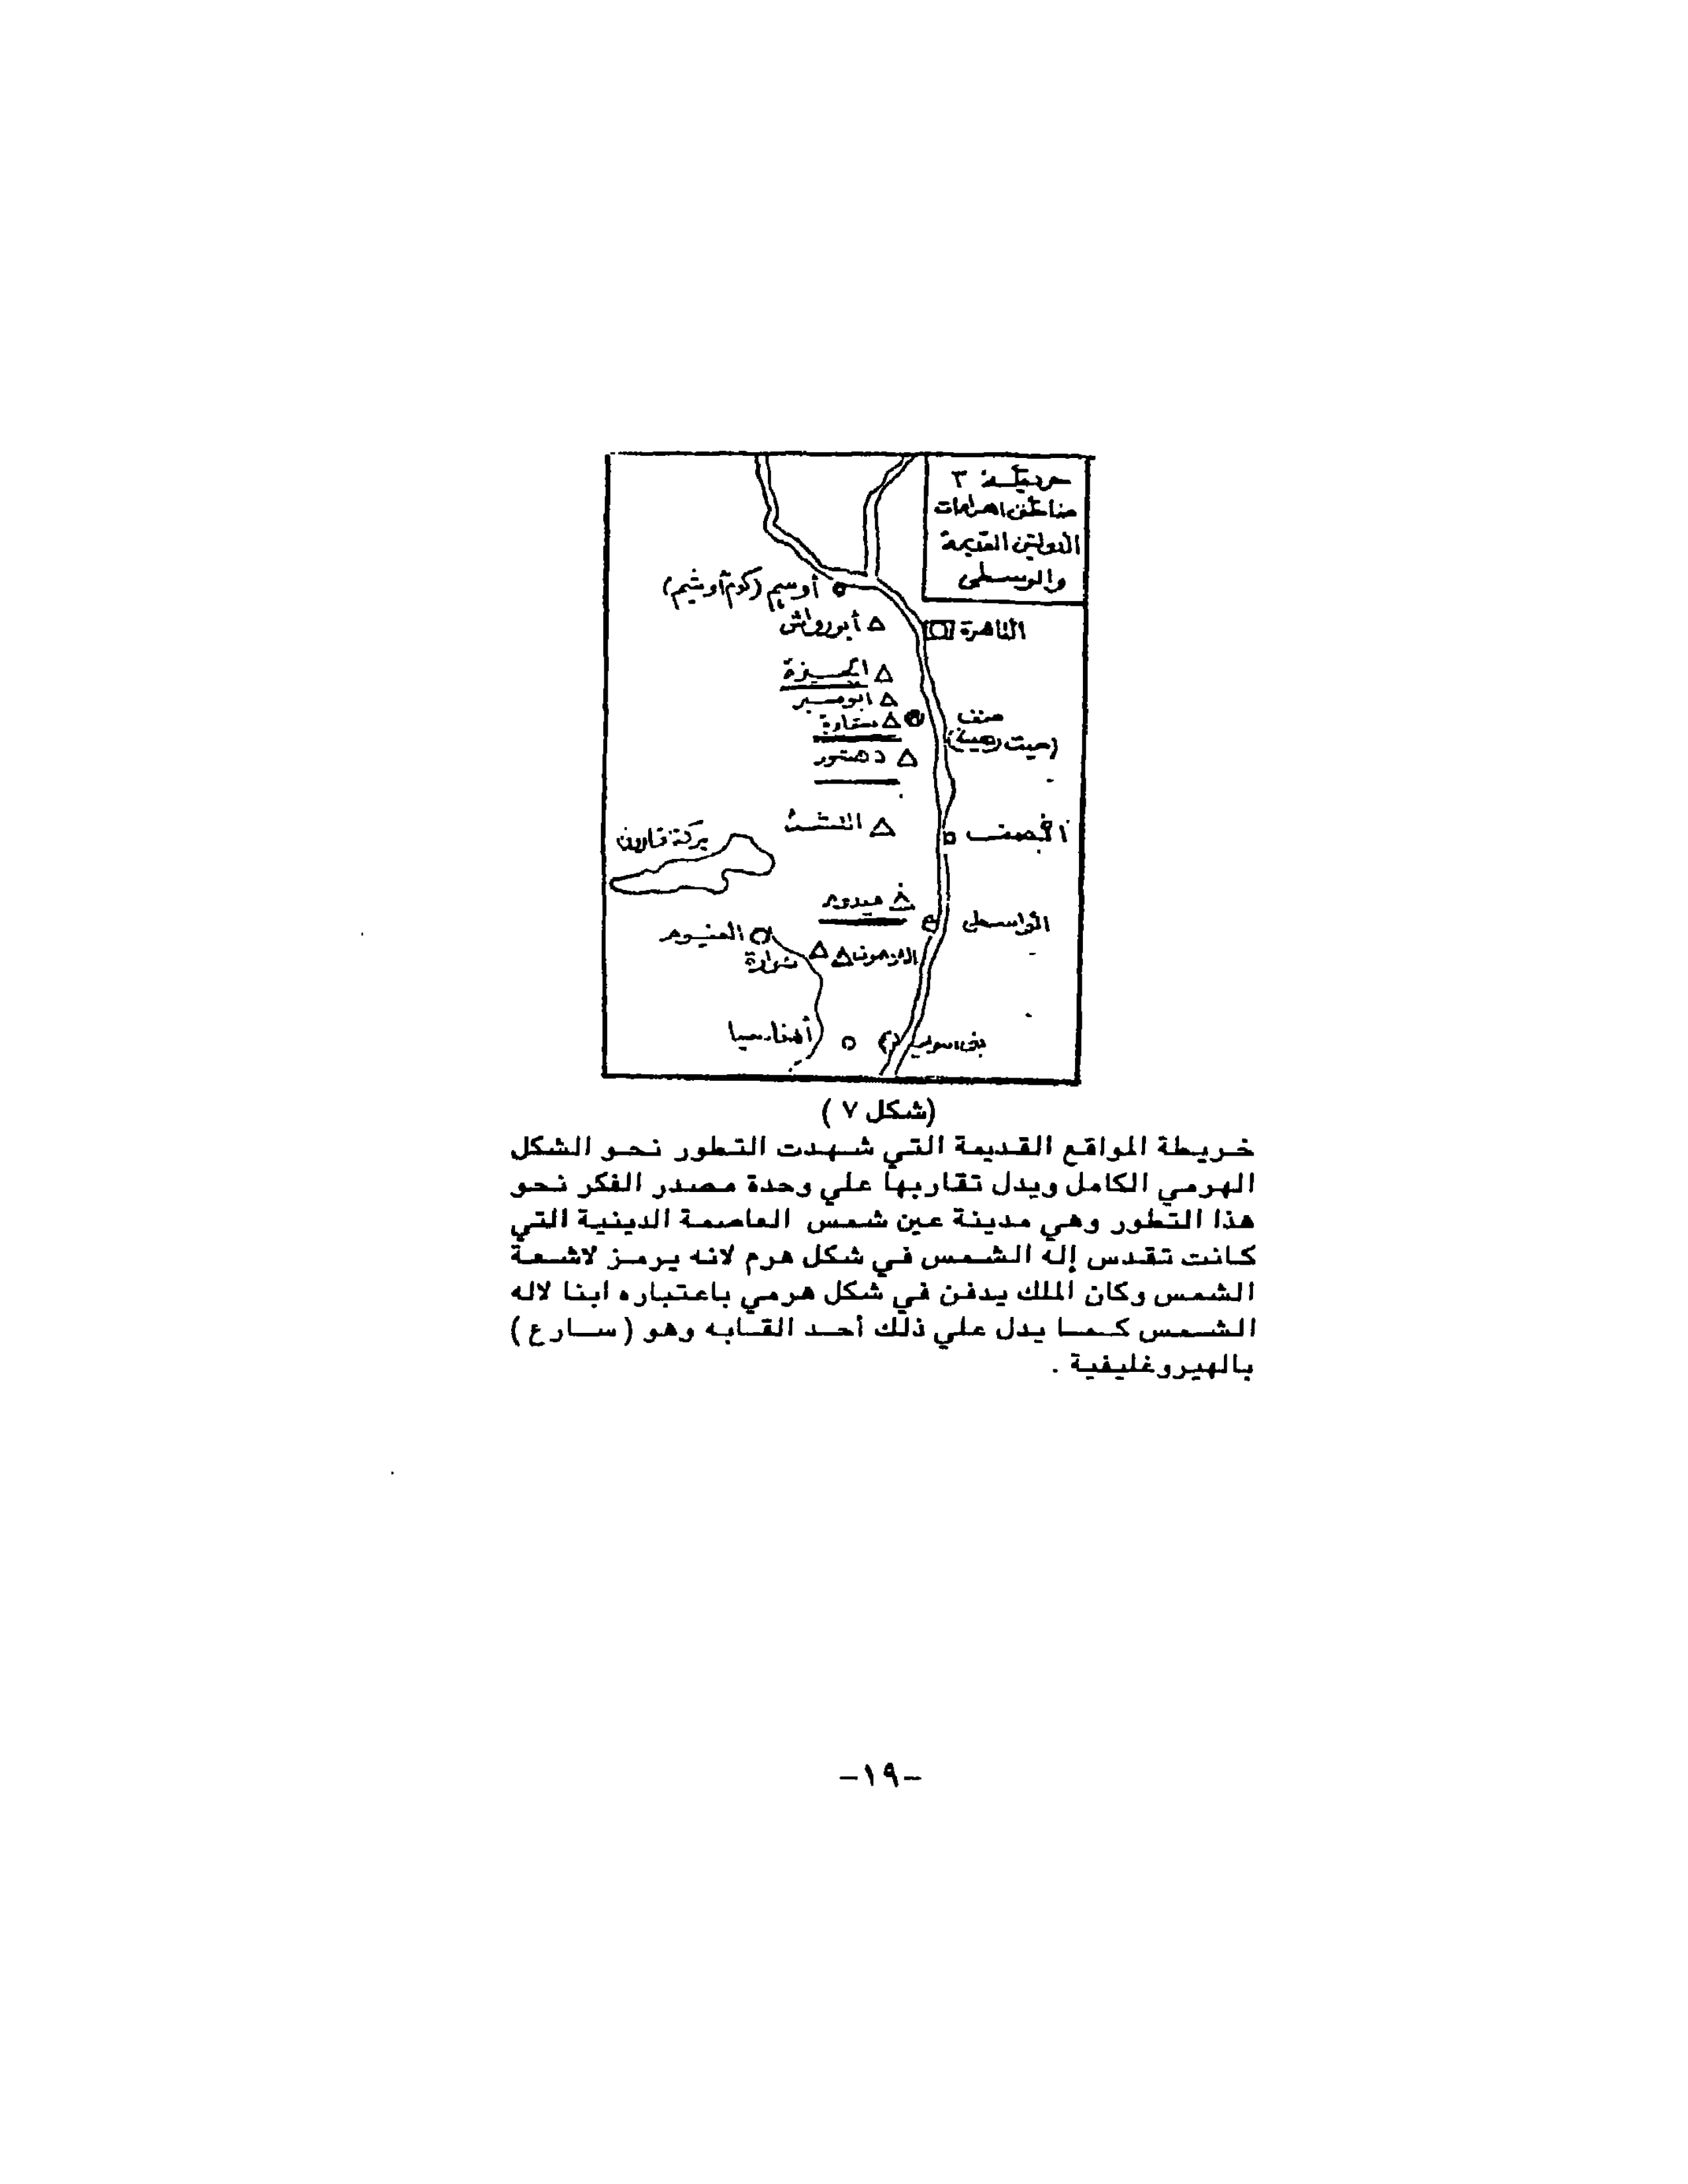 خريطة ٣
مناطق اهرامات
الدولتين القديمة
والوسطى
أوسيم (كوم أوشيم)
أبورواش
القاهرة
الجيزة
ابوصير
سقارة
منف
(ميت رهينة)
دهشور
اللشت
الصف
بركة قارون
ميدوم
الواسطى
الفيوم
اللاهون
هوارة
أهناسيا
بنى سويف
(شكل ٧ )
خريطة المواقع القديمة التي شهدت التطور نحو الشكل
الهرمي الكامل ويدل تقاربها علي وحدة مصدر الفكر نحو
هذا التطور وهي مدينة عين شمس العاصمة الدينية التي
كانت تقدس إله الشمس في شكل هرم لانه يرمز لاشعة
الشمس وكان الملك يدفن في شكل هرمي باعتباره ابنا لاله
الشمس كما يدل علي ذلك أحد القابه وهو ( سارع )
بالهيروغليفية .
-١٩-